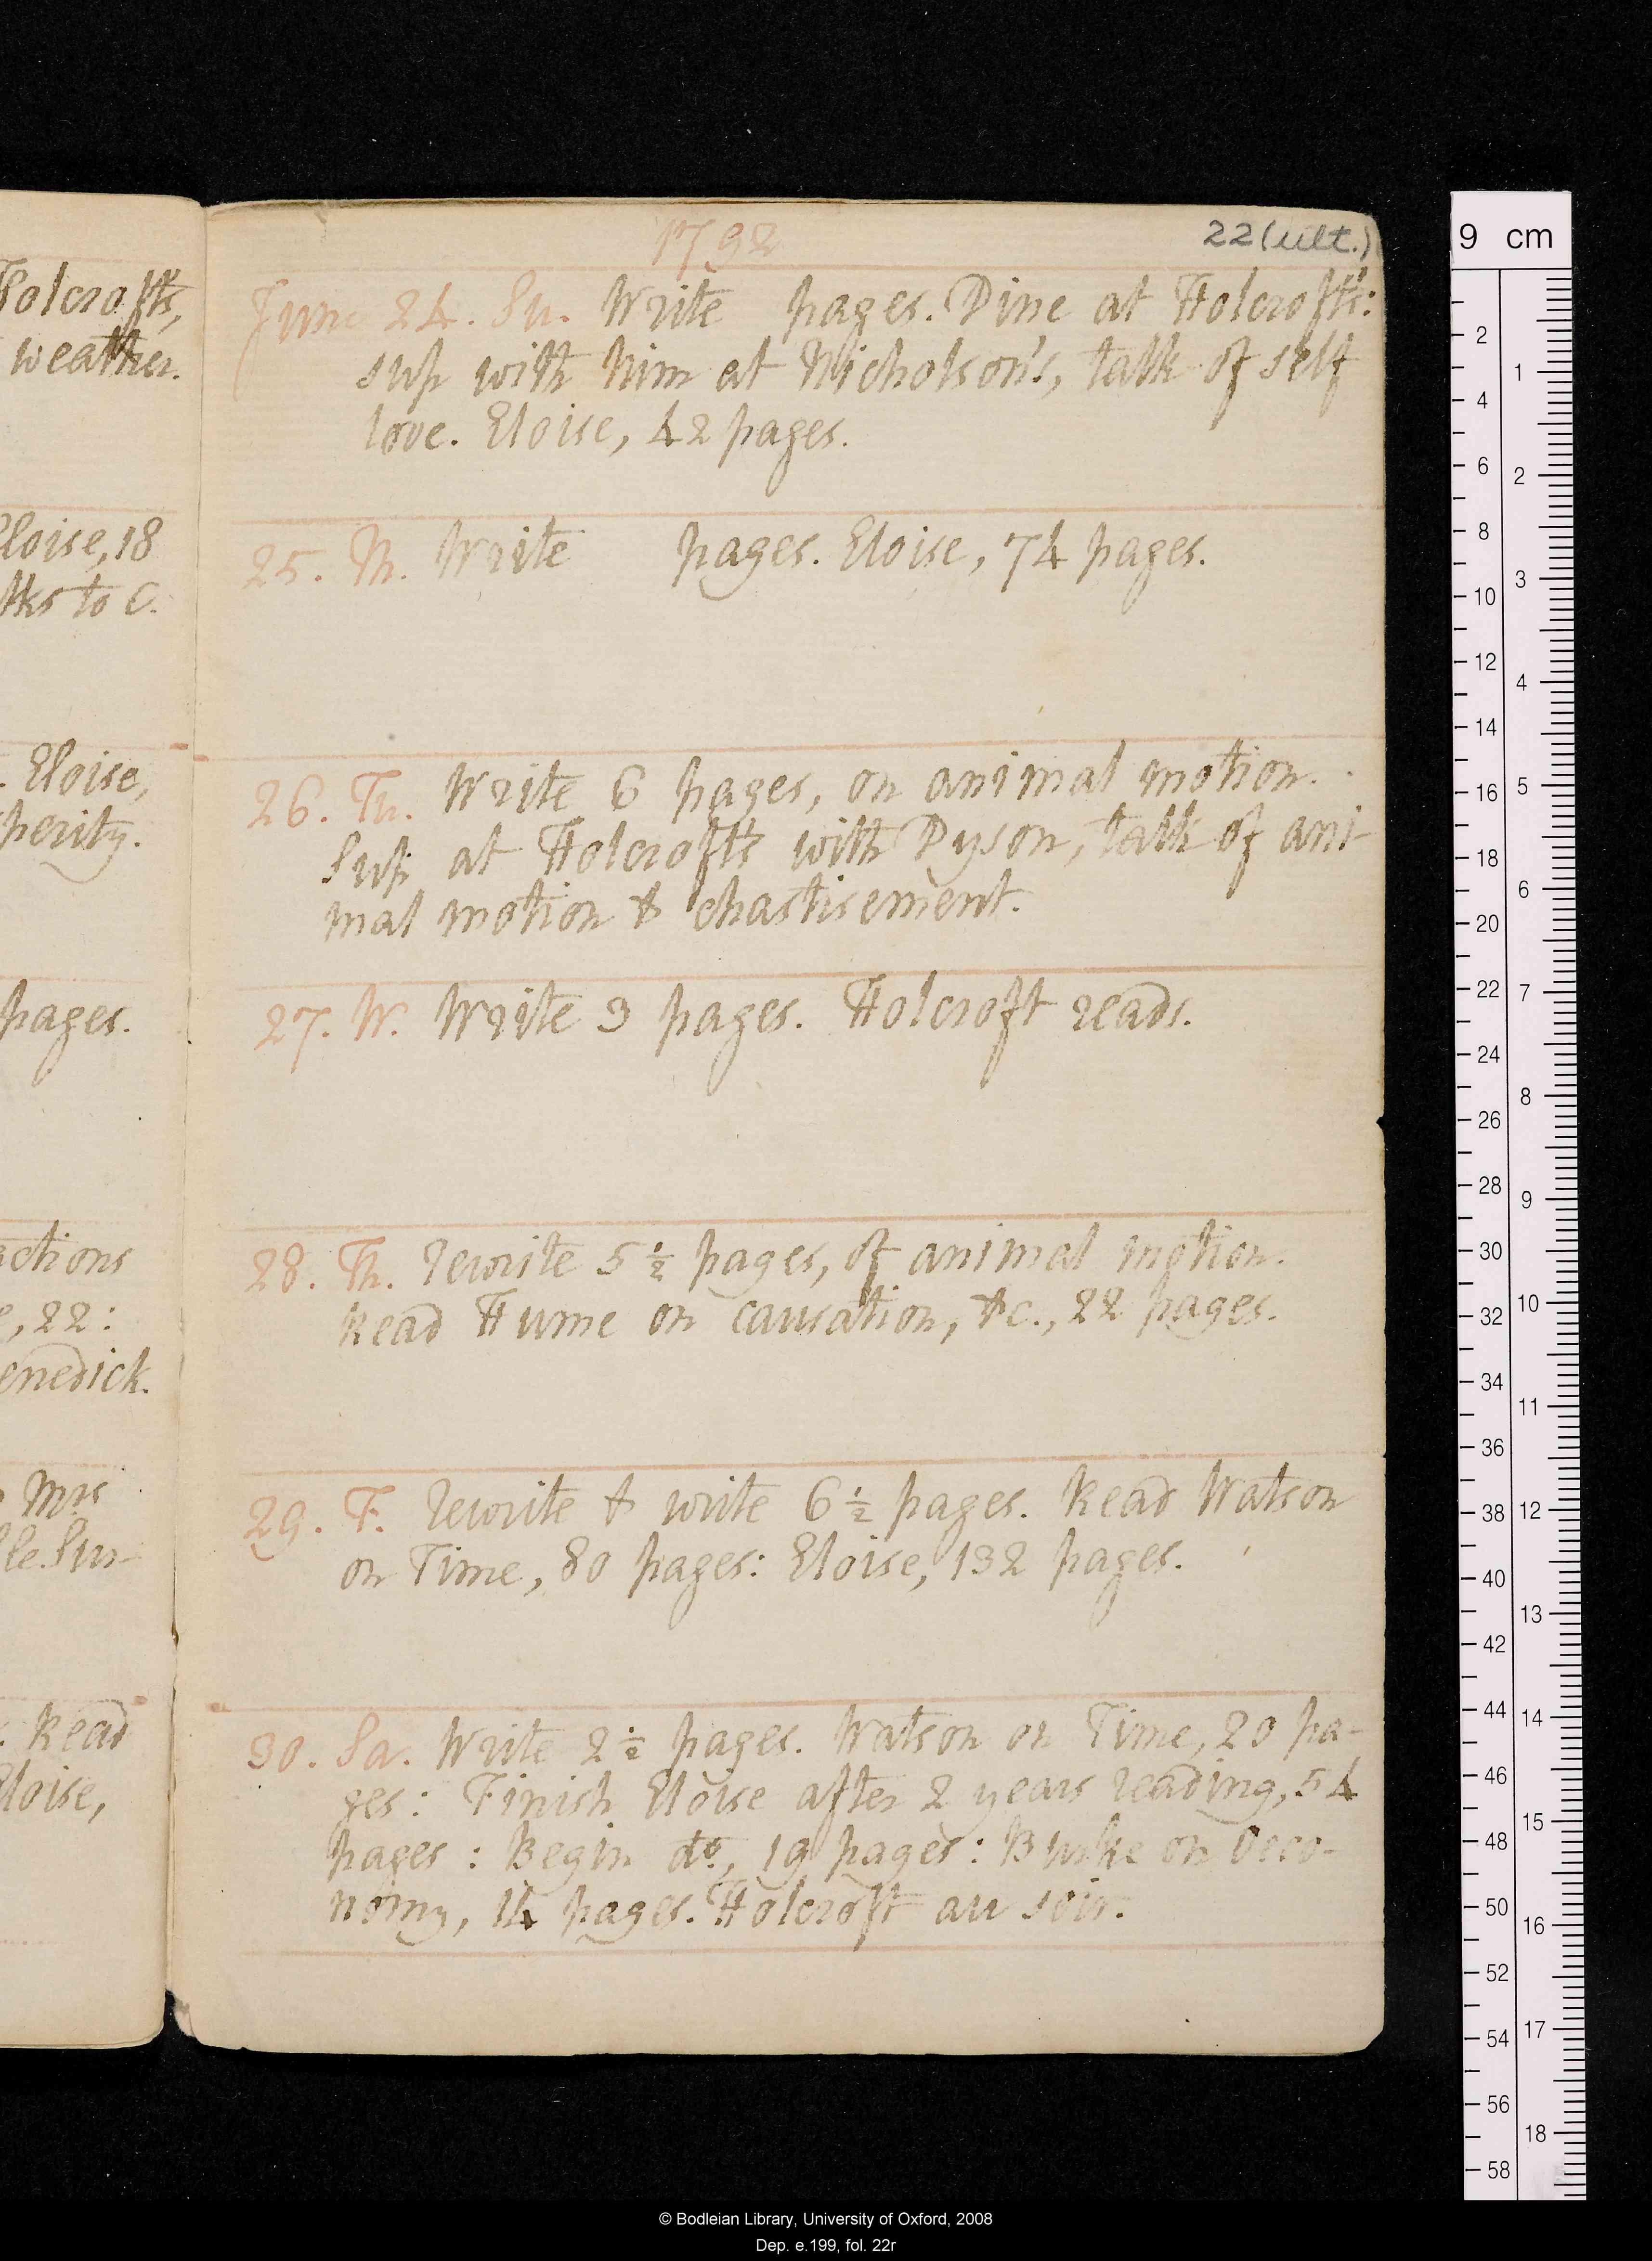 Holcroft's,
weather.
Eloise, 18
lks to C.
. Eloise,
perity.
pages.
ctions
e, 22:
enedick.
Mrs
lle. Sur-
. Read
Eloise,
1792
22 (ult.)
June 24. Su. Write pages. Dine at Holcroft's:
sup with him at Nicholson's, talk of self
love. Eloise, 42 pages.
25. M. Write pages. Eloise, 74 pages.
26. Tu. Write 6 pages, on animal motion.
Sup at Holcroft's with Dyson, talk of ani-
mal motion & chastisement.
27. W. Write 3 pages. Holcroft reads.
28. Th. Rewrite 5 ½ pages, of animal motion.
Read Hume on causation, &c., 22 pages.
29. F. Rewrite & write 6 ½ pages. Read Watson
on Time, 80 pages: Eloise, 132 pages.
30. Sa. Write 2 ½ pages. Watson on Time, 20 pa-
ges: Finish Eloise after 2 years reading, 54
pages: Begin do., 19 pages: Burke on Oeco-
nomy, 14 pages. Holcroft au soir.
9 cm
2
4
6
8
10
12
14
16
18
20
22
24
26
28
30
32
34
36
38
40
42
44
46
48
50
52
54
56
58
1
2
3
4
5
6
7
8
9
10
11
12
13
14
15
16
17
18
© Bodleian Library, University of Oxford, 2008
Dep. e.199, fol. 22r